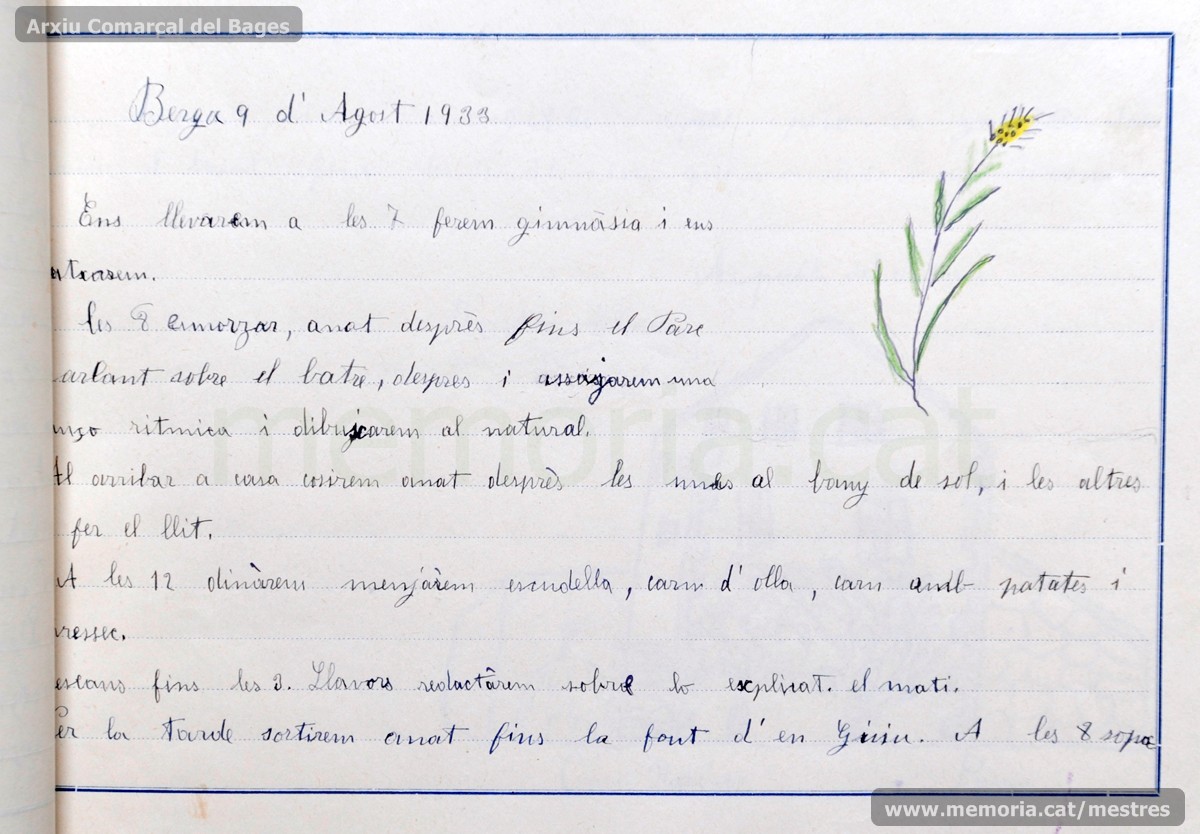 Arxiu Comarcal del Bages
Berga 9 d' Agost 1933
Ens llevarem a les 7 ferem gimnàsia i ens
ntrarem.
les 8 esmorzar, anat desprès fins el Parc
arlant sobre el batre, despres i assajarem una
nço ritmica i dibuixarem al natural.
Al arribar a casa cosirem anat desprès les unes al bany de sol, i les altres
fer el llit.
A les 12 dinàrem menjàrem escudella, carn d' olla, carn amb patates i
ressec.
escans fins les 3. Llavors redactàrem sobre lo explicat. el mati.
Per la tarde sortirem anat fins la font d' en Guiu. A les 8 sopa
memoria.cat
www.memoria.cat/mestres